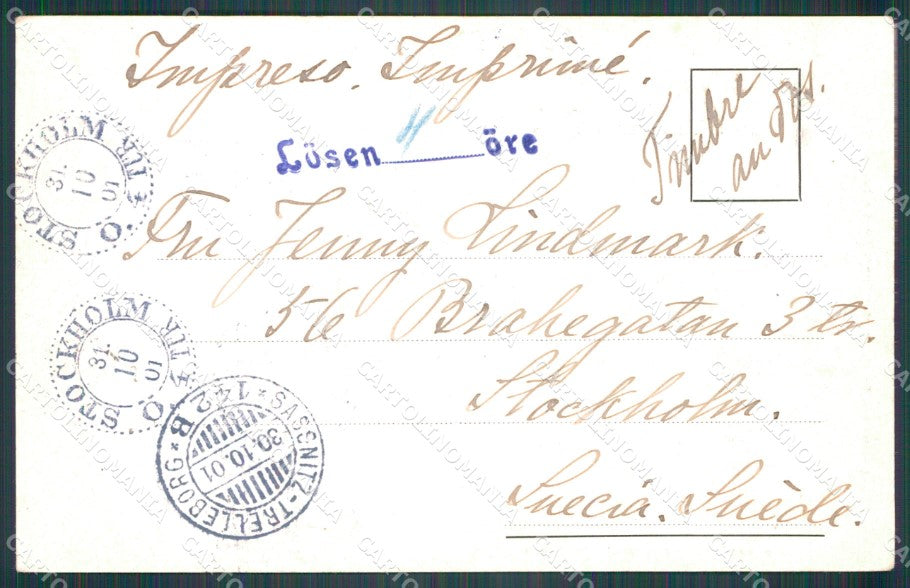 Impreso. Imprimé.
Timbre
au dos.
Lösen 4 öre
STOCKHOLM 4 TUR Q.
31.
10
01
Fru Jenny Lindmark.
56 Brahegatan 3 tr.
Stockholm.
Suecia. Suède.
STOCKHOLM 4 TUR Q.
31.
10
01
SASSNITZ-TRELLEBORG * 142 B *
30.10.01
CARTOLINOMANIA